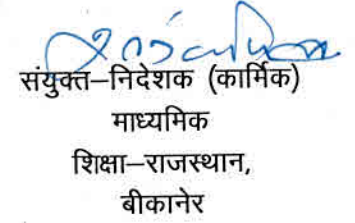 संयुक्त–निदेशक (कार्मिक)
माध्यमिक
शिक्षा–राजस्थान,
बीकानेर